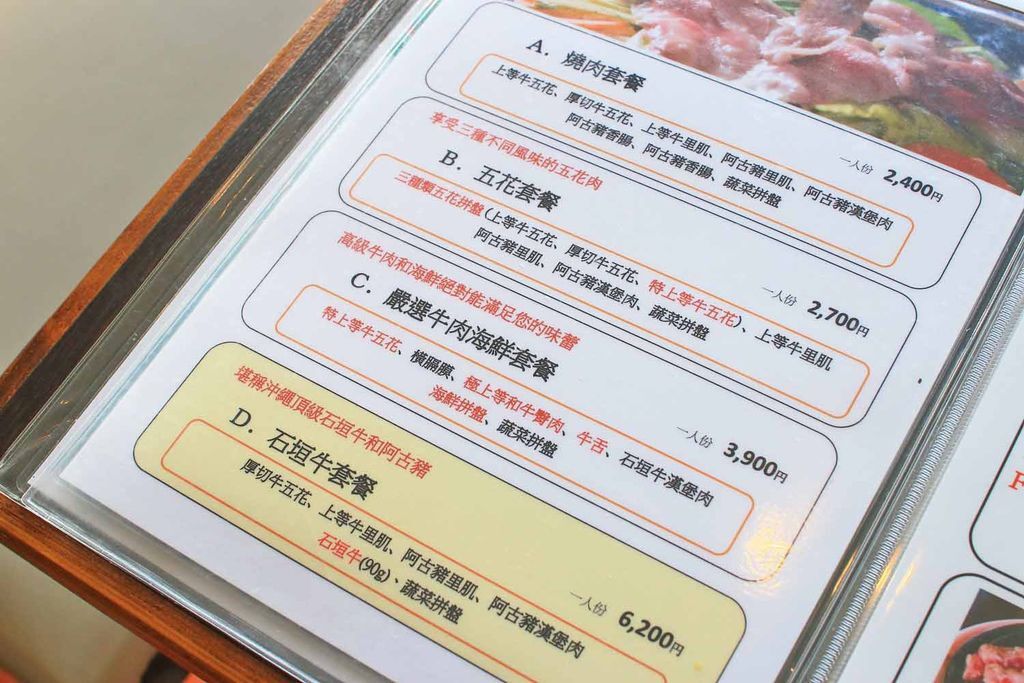 A. 燒肉套餐
一人份 2,400円
上等牛五花、厚切牛五花、上等牛里肌、阿古豬里肌、阿古豬漢堡肉
阿古豬香腸、阿古豬香腸、蔬菜拼盤
享受三種不同風味的五花肉
B. 五花套餐
一人份 2,700円
三種類五花拼盤(上等牛五花、厚切牛五花、特上等牛五花)、上等牛里肌
阿古豬里肌、阿古豬漢堡肉、蔬菜拼盤
高級牛肉和海鮮絕對能滿足您的味蕾
C. 嚴選牛肉海鮮套餐
一人份 3,900円
特上等牛五花、橫膈膜、極上等和牛臀肉、牛舌、石垣牛漢堡肉
海鮮拼盤、蔬菜拼盤
堪稱沖繩頂級石垣牛和阿古豬
D. 石垣牛套餐
一人份 6,200円
厚切牛五花、上等牛里肌、阿古豬里肌、阿古豬漢堡肉
石垣牛(90g)、蔬菜拼盤